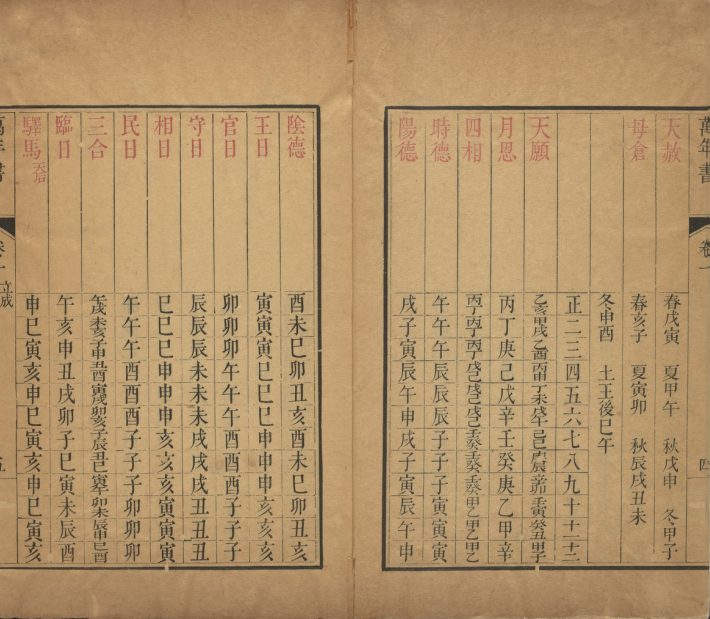 萬年書 卷一 四
天赦 春戊寅 夏甲午 秋戊申 冬甲子
母倉 春亥子 夏寅卯 秋辰戌丑未
冬申酉 土王後巳午
正二三四五六七八九十十一十二
天願 乙亥甲戌乙酉丙申丁未戊午己巳庚辰辛卯壬寅癸丑甲子
月恩 丙丁庚己戊辛壬癸庚乙甲辛
四相 丙丁丙丁丙丁戊己戊己戊己壬癸壬癸壬癸甲乙甲乙甲乙
時德 午午午辰辰辰子子子寅寅寅
陽德 戌子寅辰午申戌子寅辰午申
陰德 酉未巳卯丑亥酉未巳卯丑亥
王日 寅寅寅巳巳巳申申申亥亥亥
官日 卯卯卯午午午酉酉酉子子子
守日 辰辰辰未未未戌戌戌丑丑丑
相日 巳巳巳申申申亥亥亥寅寅寅
民日 午午午酉酉酉子子子卯卯卯
三合 午戌未亥子申丑酉寅戌卯亥子辰丑巳寅午卯未辰申巳酉
臨日 午亥申丑戌卯子巳寅未辰酉
驛馬 天后 申巳寅亥申巳寅亥申巳寅亥
萬年書 卷一 立成 五